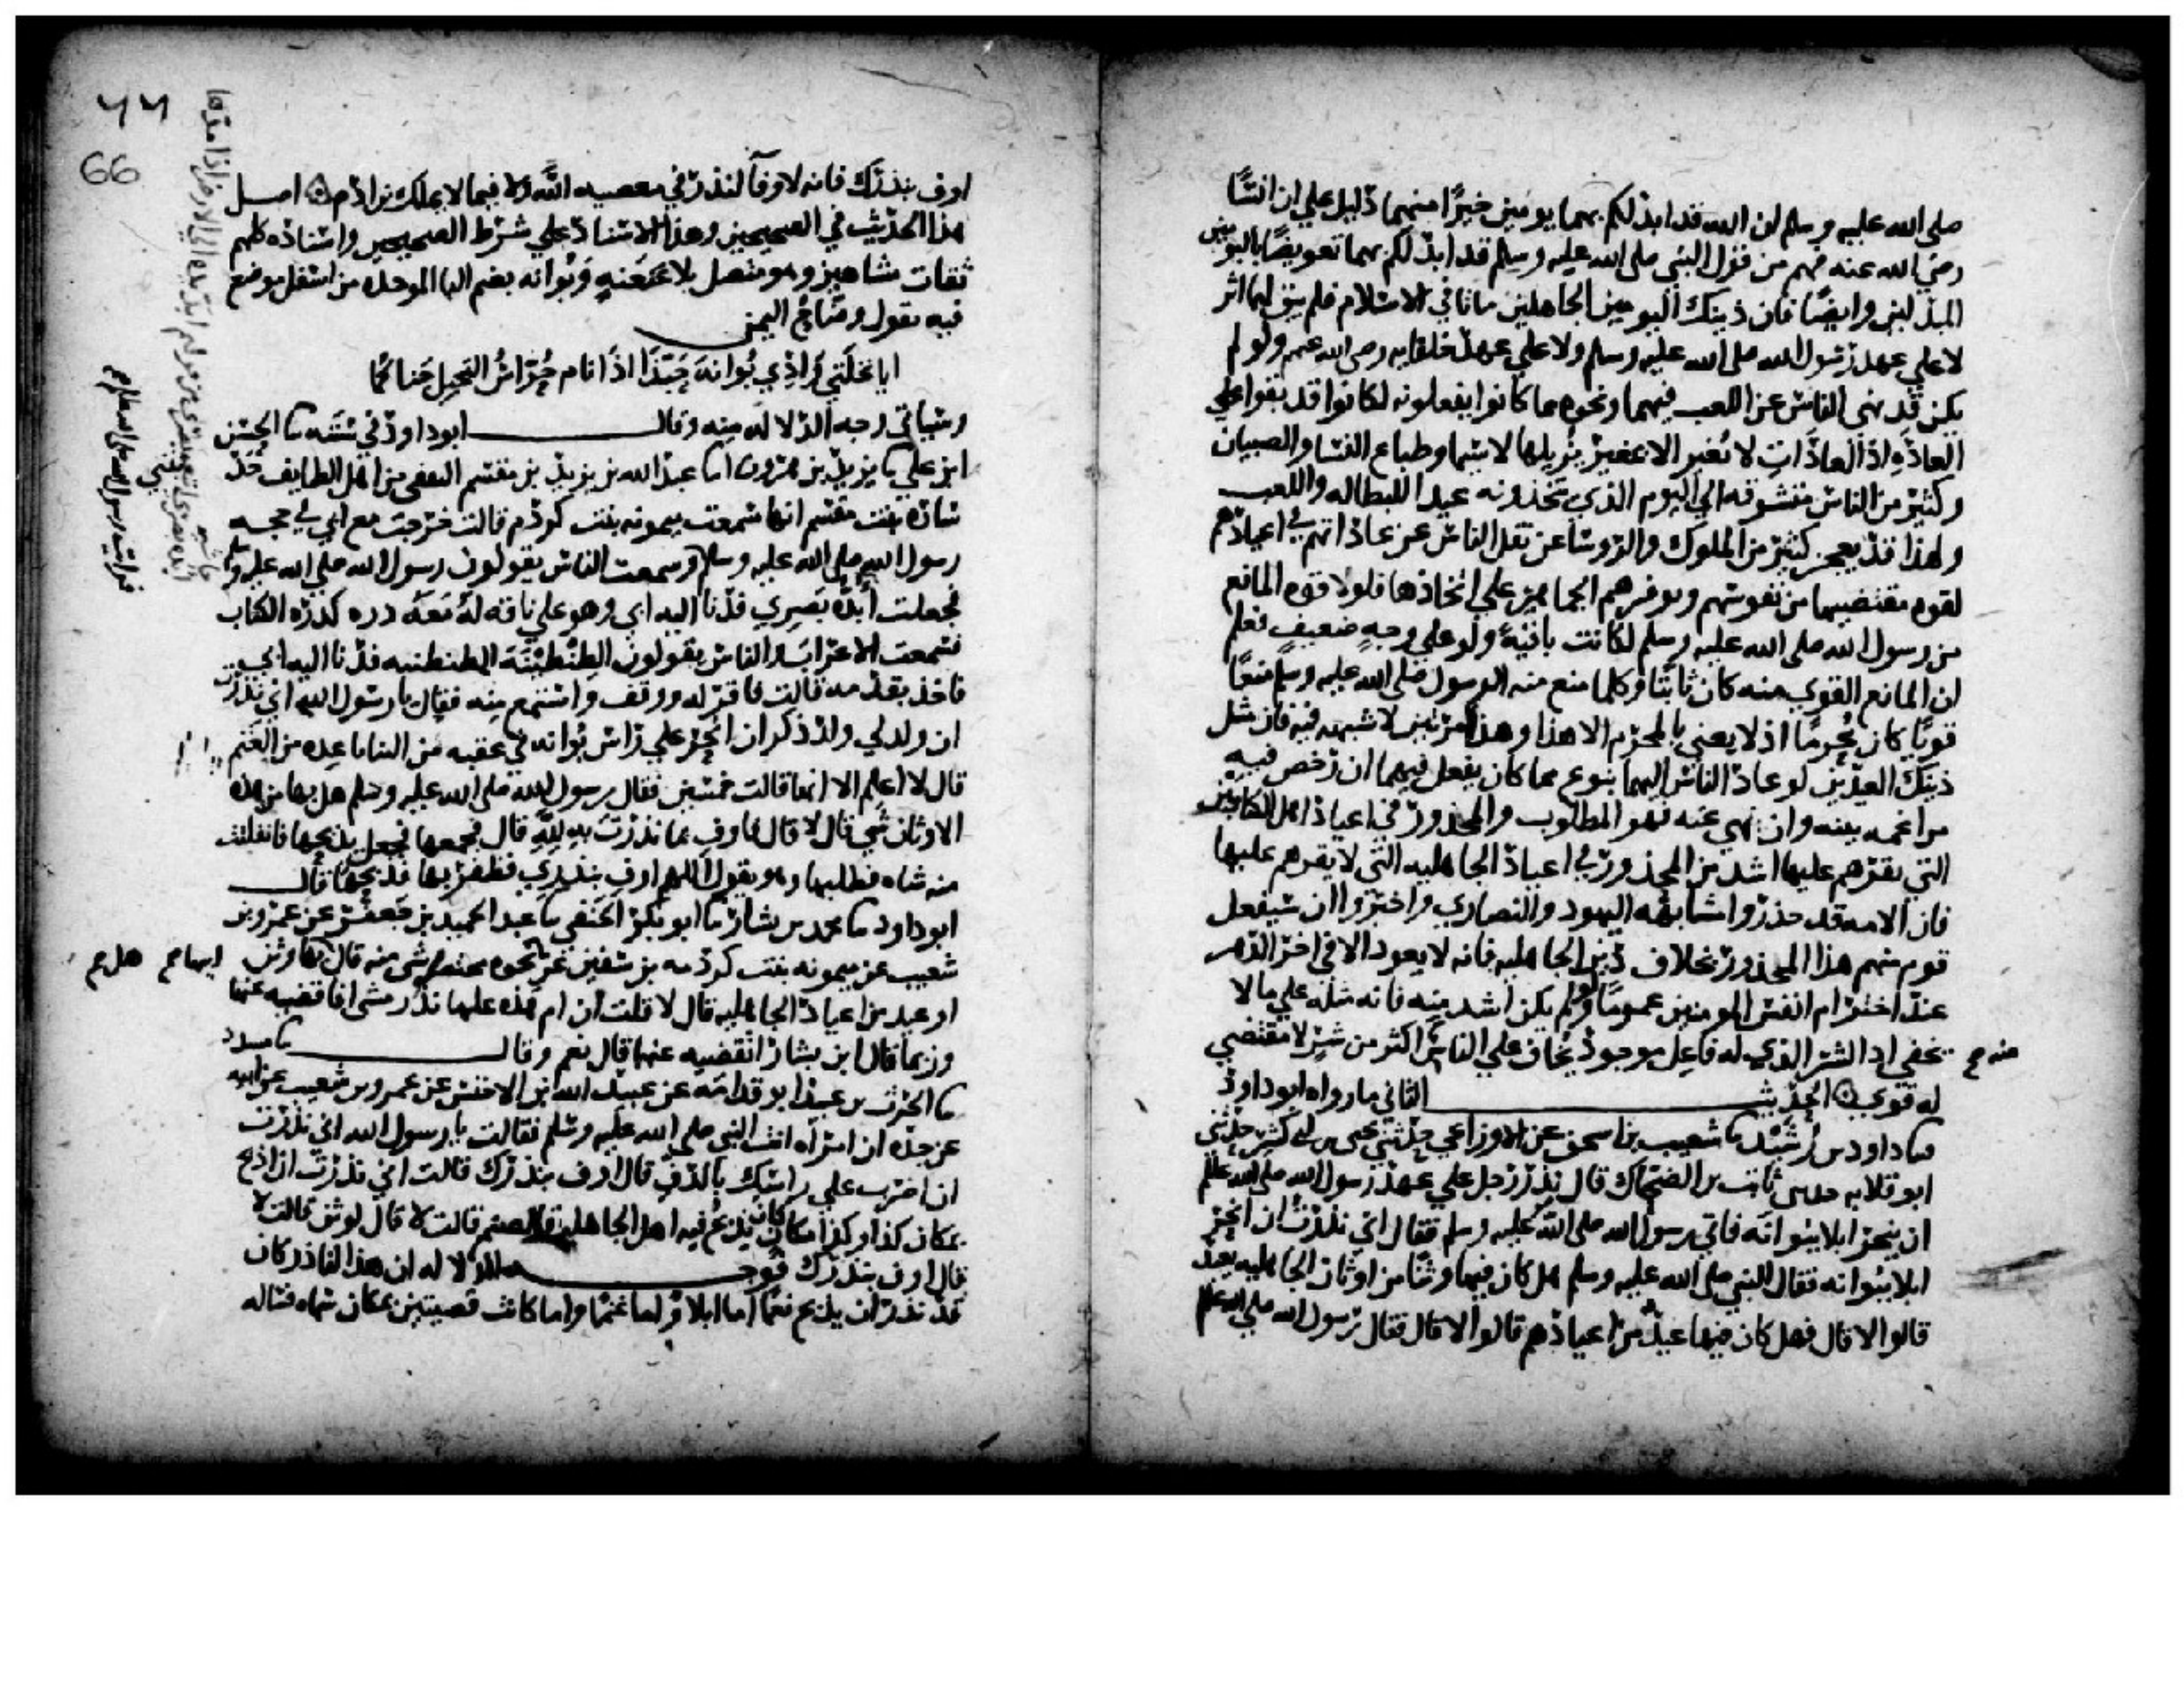 صلى الله عليه وسلم ان الله قد ابدلكم بهما يومين خيرًا منهما دليل علي ان انسًا
رضي الله عنه فهم من قول النبي صلى الله عليه وسلم قد ابدلكم بهما تعويضًا باليومين
المبدلين وايضًا فان ذينك اليومين الجاهلين ماتا في الاسلام فلم يبق لهما اثر
لا علي عهد رسول الله صلى الله عليه وسلم ولا علي عهد خلفايه رضي الله عنهم ولو لم
يكن قد نهى الناس عن اللعب فيهما ونحوه مما كانوا يفعلونه لكانوا قد بقوا علي
العادَه اذ العادات لا تُغير الا بمغير يزيلها لا سيما وطباع النسا والصبيان
وكثير من الناس متشوقه الي اليوم الذي يتخذونه عيدا للبطاله واللعب
ولهذا قد يعجز كثير من الملوك والروسا عن نقل الناس عن عاداتهم في اعيادهم
لقوه مقتضيها من نفوسهم وتوفر همم الجماهير علي اتخاذها فلولا قوه المانع
من رسول الله صلى الله عليه وسلم لكانت باقيةً ولو علي وجهٍ ضعيفٍ فعلم
ان المانع القوي منه كان ثابتًا وكلما منع منه الرسول صلى الله عليه وسلم منعًا
قويًا كان محرمًا اذ لا يعني بالمحرم الا هذا وهذا امر بين لا شبهه فيه فان مثل
ذينك العيدين لو عاد الناس اليهما بنوع مما كان يفعل فيهما ان رخص فيه
مراغمه بينه وان نهي عنه فهو المطلوب والمحذور في اعياد اهل الكتابين
التي نقرهم عليها اشد من المحذور في اعياد الجاهليه التي لا نقرهم عليها
فان الامه قد حذروا مشابهه اليهود والنصاري واخبروا ان سيفعل
قوم منهم هذا المحذور بخلاف دين الجاهليه فانه لا يعود الا في اخر الدهر
عند اخترام انفس المومنين عمومًا ولو لم يكن اشد منه فانه مثله علي ما لا
يخفي اذ الشر الذي له فاعل موجود يخاف علي الناس منه اكثر من شر لا مقتضي
له قوي الحديث الثاني ما رواه ابوداود
داود بن رُشَيْد شعيب بن اسحق عن الاوزاعي حدثني يحيى بن ابي كثير حدثني
ابو قلابه حدثني ثابت بن الضحاك قال نذر رجل علي عهد رسول الله صلى الله عليه وسلم
ان ينحر ابلا ببُوانَه فاتي رسول الله صلى الله عليه وسلم فقال اني نذرت ان انحر
ابلا ببُوانه فقال النبي صلى الله عليه وسلم هل كان فيها وثنًا من اوثان الجاهليه يعبد
قالوا لا قال فهل كان فيها عيدٌ من اعيادهم قالوا لا قال فقال رسول الله صلى الله عليه وسلم
منه صح
٦٦
66
اوف بنذرك فانه لا وفآ لنذر في معصيه اللَّه ولا فيما لا يملك بن ادم اصل
هذا الحديث في الصحيحين وهذا الاسناد علي شرط الصحيحين واسناده كلهم
ثقات مشاهير وهو متصل بلا عَنعَنهٍ وبُوانه بضم البا الموحده من اسفل موضع
فيه يقول وضاح اليمن
ايا نخلَتي وَادِي بُوانَهَ حَبّذَا اذا نام حُرّاسُ النخيل جَناكُما
وسياتي وجه الدلالَه منه وقال ابوداود في سننه الحسن
ابن علي يزيد بن هرون عبد الله بن يزيد بن مقسم الثقفي من اهل الطايف حدثتني
ساره بنت مقسم انها سمعت ميمونه بنت كردم قالت خرجت مع ابي في حجه
رسول الله صلى الله عليه وسلم وسمعت الناس يقولون رسول الله صلى الله عليه وسلم
فجعلت أُبدّه بَصرِي فدنا اليه ابي وهو علي ناقه لَه مَعَه دره كدره الكتاب
فسمعت الاعراب والناس يقولون الطبْطبيَّة الطبطبيه فدنا اليه ابي
فاخذ بقدمه قالت فاقر له ووقف واستمع منه فقال يا رسول الله اني نذرت
ان ولد لي ولد ذكر ان انحر علي راس بُوانه في عقبه من الثنايا عده من الغنم
قال لا اعلم الا انها قالت خمسين فقال رسول الله صلى الله عليه وسلم هل بها من هذه
الاوثان شي قال لا قال فاوف بما نذرت به للَّه قال فجمعها فجعل يذبحها فانفلتت
منه شاه فطلبها وهو يقول اللهم اوف بنذري فظفر بها فذبحها قال
ابوداود محمد بن بشار ابو بكر الحنفي عبد الحميد بن جَعفَر عن عمرو بن
شعيب عن ميمونه بنت كردمه بن سفين عن نحوه مختصر شي منه قال بها وثن
او عيد من اعياد الجاهليه قال لا قلت ان ام هذه عليها نذر مشي افاقضيه عنها
وربما قال ابن بشار انقضيه عنها قال نعم وقال مسدد
الحرث بن عبيد ابو قدامَه عن عبيد الله بن الاخنس عن عمرو بن شعيب عن ابيه
عن جده ان امراه اتت النبي صلى الله عليه وسلم فقالت يا رسول الله اني نذرت
ان اضرب علي راسك بالدف قال اوف بنذرك قالت اني نذرت ان اذبح
بمكان كذا وكذا مكان كان يذبح فيه اهل الجاهليه قال لصنم قالت لا قال لوثن قالت لا
قال اوف بنذرك فوجه الدلاله ان هذا الناذر كان
قد نذر ان يذبح نعمًا اما ابلا واما غنمًا واما كانت قصيتين بمكان سماه فساله
فرايت رسول الله صلى الله عليه وسلم